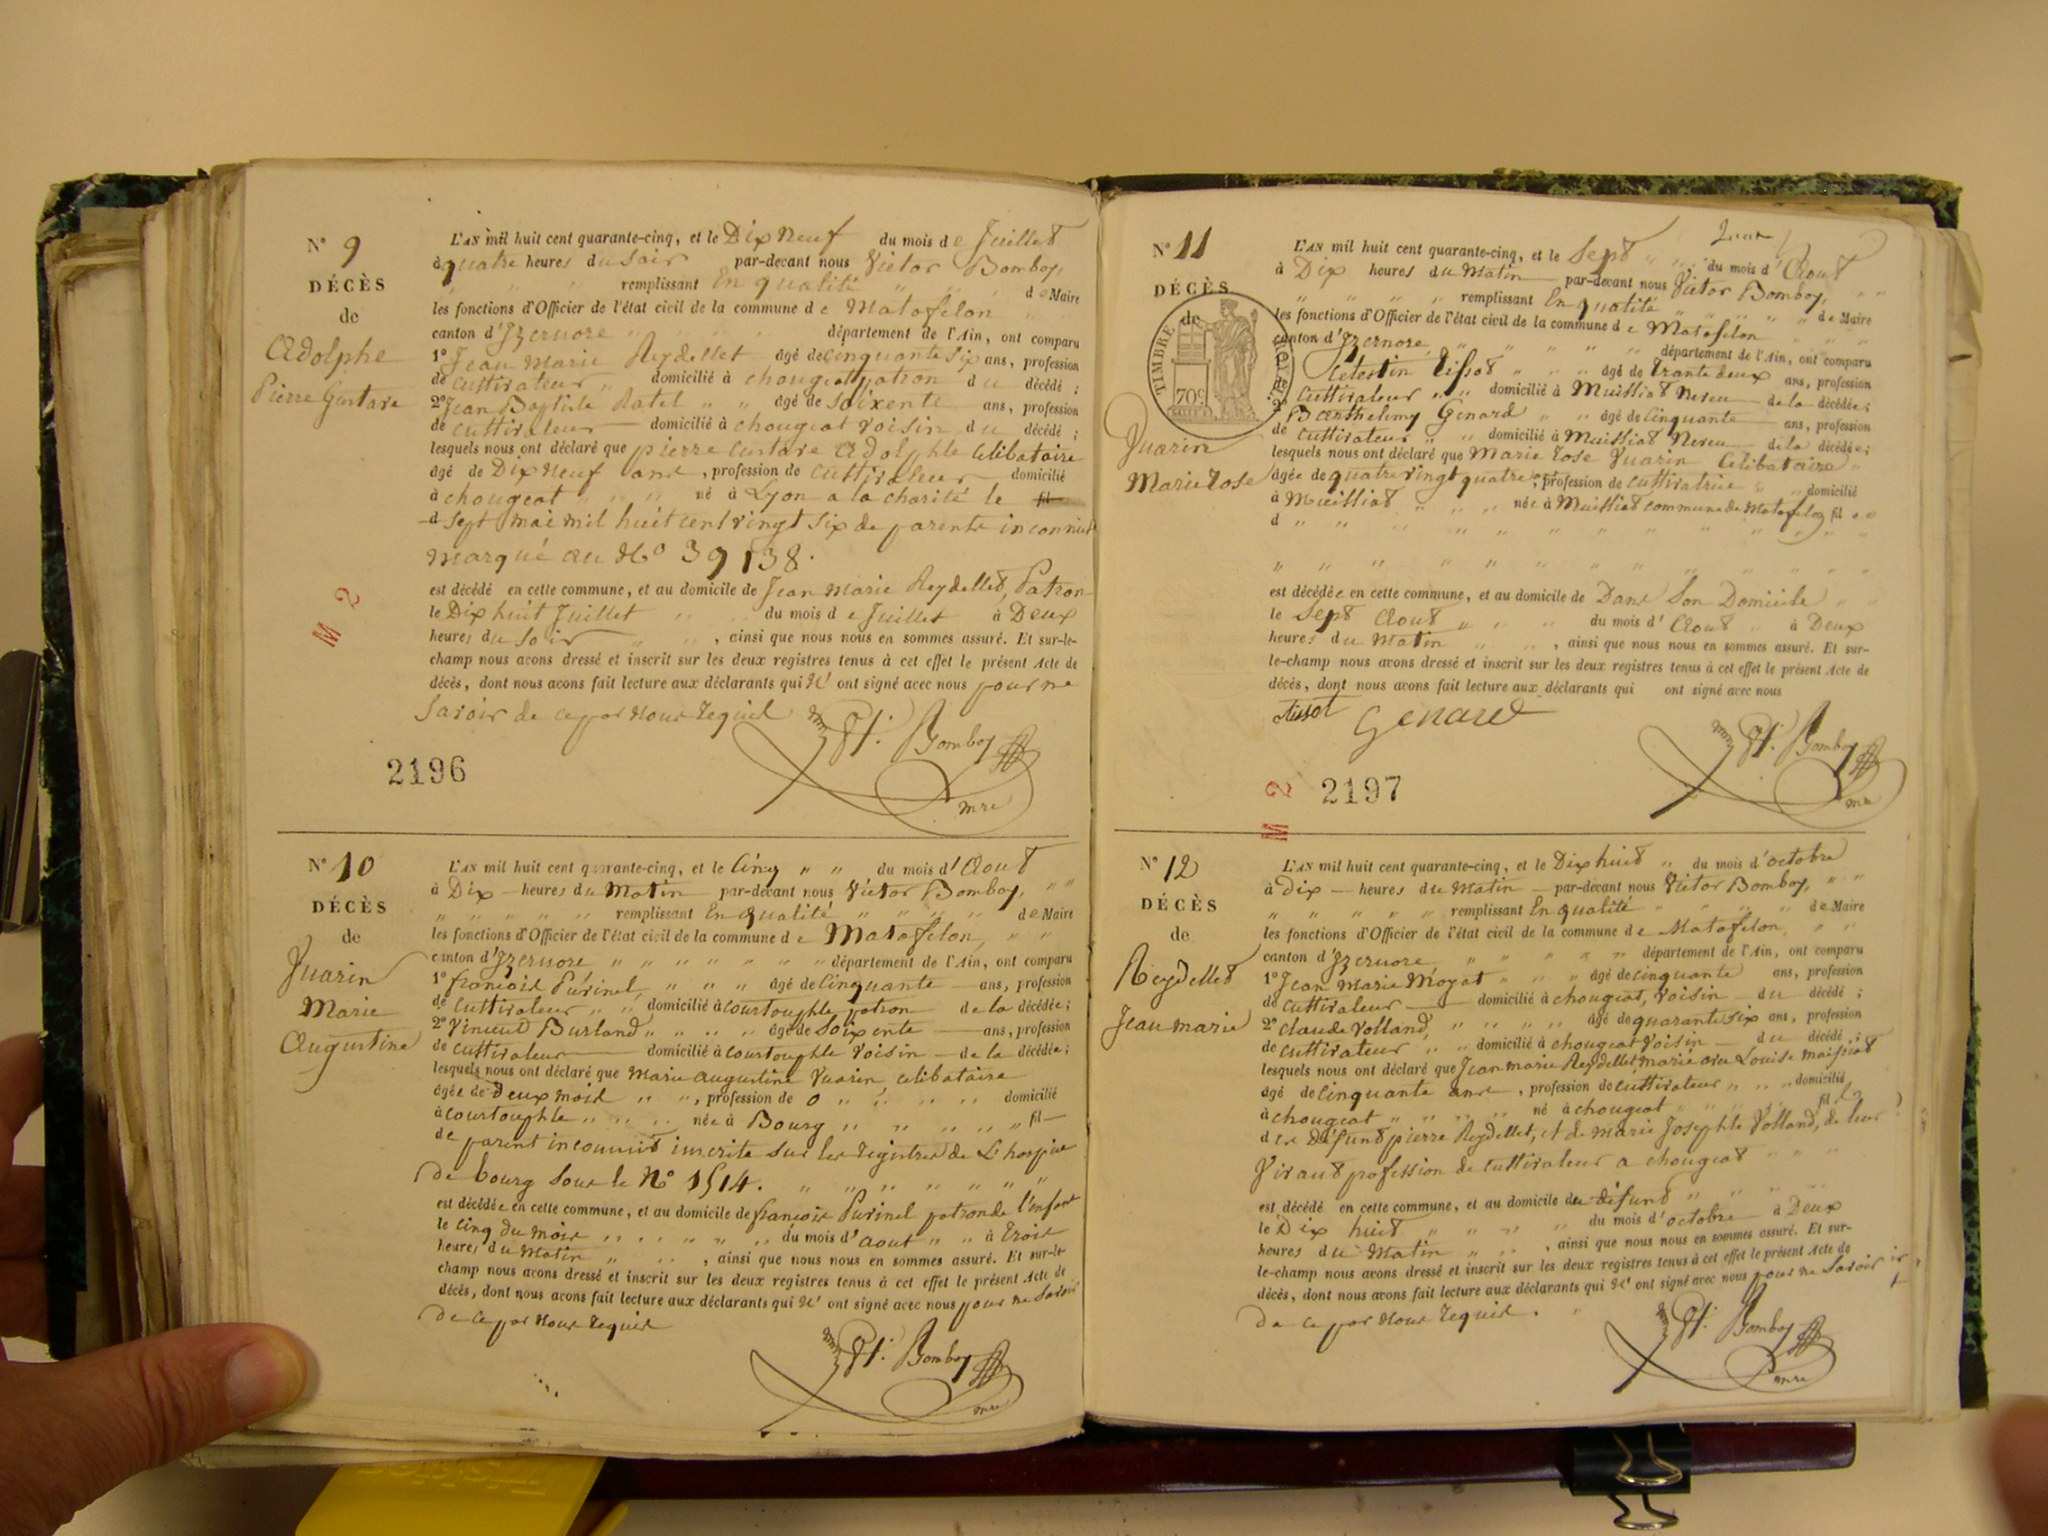 N° 9
DÉCÈS
de
Adolphe
Pierre Gustave
L'AN mil huit cent quarante-cinq, et le Dix neuf du mois de Juillet
à quatre heures du Soir par-devant nous Victor Bomboy,
remplissant En qualité de Maire
les fonctions d'Officier de l'état civil de la commune de Matafelon
canton d'Izernore département de l'Ain, ont comparu
1° Jean Marie Reydellet agé de cinquante six ans, profession
de cultivateur domicilié à chougeat patron du décédé ;
2° Jean Baptiste Ratel agé de Soixente ans, profession
de cultivateur domicilié à chougeat voisin du décédé ;
lesquels nous ont déclaré que pierre Gustave Adolphe célibataire
âgé de Dix neuf ans, profession de cultivateur domicilié
à chougeat né à Lyon a la charité le fil
d Sept mai mil huit cent vingt six de parents inconnus
marqué au No 39138.
est décédé en cette commune, et au domicile de Jean Marie Reydellet, Patron
le Dix huit Juillet du mois de Juillet à Deux
heures du Soir, ainsi que nous nous en sommes assuré. Et sur-le-
champ nous avons dressé et inscrit sur les deux registres tenus à cet effet le présent Acte de
décès, dont nous avons fait lecture aux déclarants qui N' ont signé avec nous pour ne
Savoir de ce par Nous requis
Bomboy
mre
2196
M 2
N° 10
DÉCÈS
de
Vuarin
Marie
Augustine
L'AN mil huit cent quarante-cinq, et le Cinq " " du mois d'Aout
à Dix heures du Matin par-devant nous Victor Bomboy, " "
" " " " " remplissant En qualité " " " " de Maire
les fonctions d'Officier de l'état civil de la commune de Matafelon, " "
canton d'Izernore " " " " " " " département de l'Ain, ont comparu
1° françois Purinel, " " " âgé de Cinquante ans, profession
de Cultivateur " " domicilié à courtouphle patron de la décédée ;
2° Vincent Burland " " " " âgé de Soixente ans, profession
de cultivateur domicilié à courtouphle voisin de la décédée ;
lesquels nous ont déclaré que Marie augustine Vuarin célibataire
âgée de Deux mois " ", profession de 0 " " " " " domicilié
à courtouphle " " " née à Bourg " " " " " fil
de parent inconnus inscrite sur les registres de L'hospice
de bourg Sous le N° 1514. " " " " " "
est décédée en cette commune, et au domicile de françois Purinel patron de l'enfant
le Cinq du mois " " " " " " du mois d'aout " " à Trois
heures du Matin " " ", ainsi que nous nous en sommes assuré. Et sur-le
champ nous avons dressé et inscrit sur les deux registres tenus à cet effet le présent Acte de
décès, dont nous avons fait lecture aux déclarants qui N' ont signé avec nous pour ne Savoir
de ce par Nous requis
Bomboy
mre
N° 11
DÉCÈS
de
TIMBRE ROYAL
70c
Vuarin
Marie Rose
L'AN mil huit cent quarante-cinq, et le Sept " " du mois d'Aout
à Dix heures du Matin par-devant nous Victor Bomboy, " "
" " " " remplissant En qualité " " " " de Maire
les fonctions d'Officier de l'état civil de la commune de Matafelon " " "
canton d'Izernore " " " " " " département de l'Ain, ont comparu
Celestin Tissot " " " âgé de Trante deux ans, profession
Cultivateur " " domicilié à Muissiat Nereu de la décédée ;
Barthelemy Genard " " âgé de Cinquante ans, profession
de cultivateur " " domicilié à Muissiat Nereu de la décédée ;
lesquels nous ont déclaré que Marie rose Vuarin Celibataire "
âgée de quatre vingt quatre ans, profession de cultivatrice " " domicilié
à Muissiat " " " " née à Muissiat commune de Matafelon fil " "
d " " " " " " " " " " " "
" " " " " " " " " " " "
est décédée en cette commune, et au domicile de Dans Son Domicile " "
le Sept Aout " " " " du mois d'Aout " à Deux
heures du Matin " " , ainsi que nous nous en sommes assuré. Et sur-
le-champ nous avons dressé et inscrit sur les deux registres tenus à cet effet le présent Acte de
décès, dont nous avons fait lecture aux déclarants qui ont signé avec nous
tissot Genard
Bomboy
mre
M 2
2197
N° 12
DÉCÈS
de
Reydellet
Jean marie
L'AN mil huit cent quarante-cinq, et le Dix huit " du mois d'octobre
à Dix heures du Matin par-devant nous Victor Bomboy, " "
" " " " " remplissant En qualité " " " " de Maire
les fonctions d'Officier de l'état civil de la commune de Matafelon, " "
canton d'Izernore " " " " " département de l'Ain, ont comparu
1° Jean Marie Moyat " " " âgé de cinquante ans, profession
de cultivateur domicilié à chougeat, voisin du décédé ;
2° Claude Volland, " " " " " âgé de quarante six ans, profession
de cultivateur " " domicilié à chougeat voisin du décédé ;
lesquels nous ont déclaré que Jean marie Reydellet marié avec Louise maissiat
âgé de cinquante ans, profession de cultivateur " " " domicilié
à chougeat " " " " " né à chougeat " " " " fils
des Défunt pierre Reydellet, et de marie Josephte Volland, de leur
Vivant profession de cultivateur a chougeat " " "
est décédé en cette commune, et au domicile du défunt " " " "
le Dix huit " " " " " du mois d'octobre à Deux
heures du Matin " " " , ainsi que nous nous en sommes assuré. Et sur-
le-champ nous avons dressé et inscrit sur les deux registres tenus à cet effet le présent Acte de
décès, dont nous avons fait lecture aux déclarants qui N' ont signé avec nous pour ne Savoir
de ce par Nous requis.
Bomboy
mre